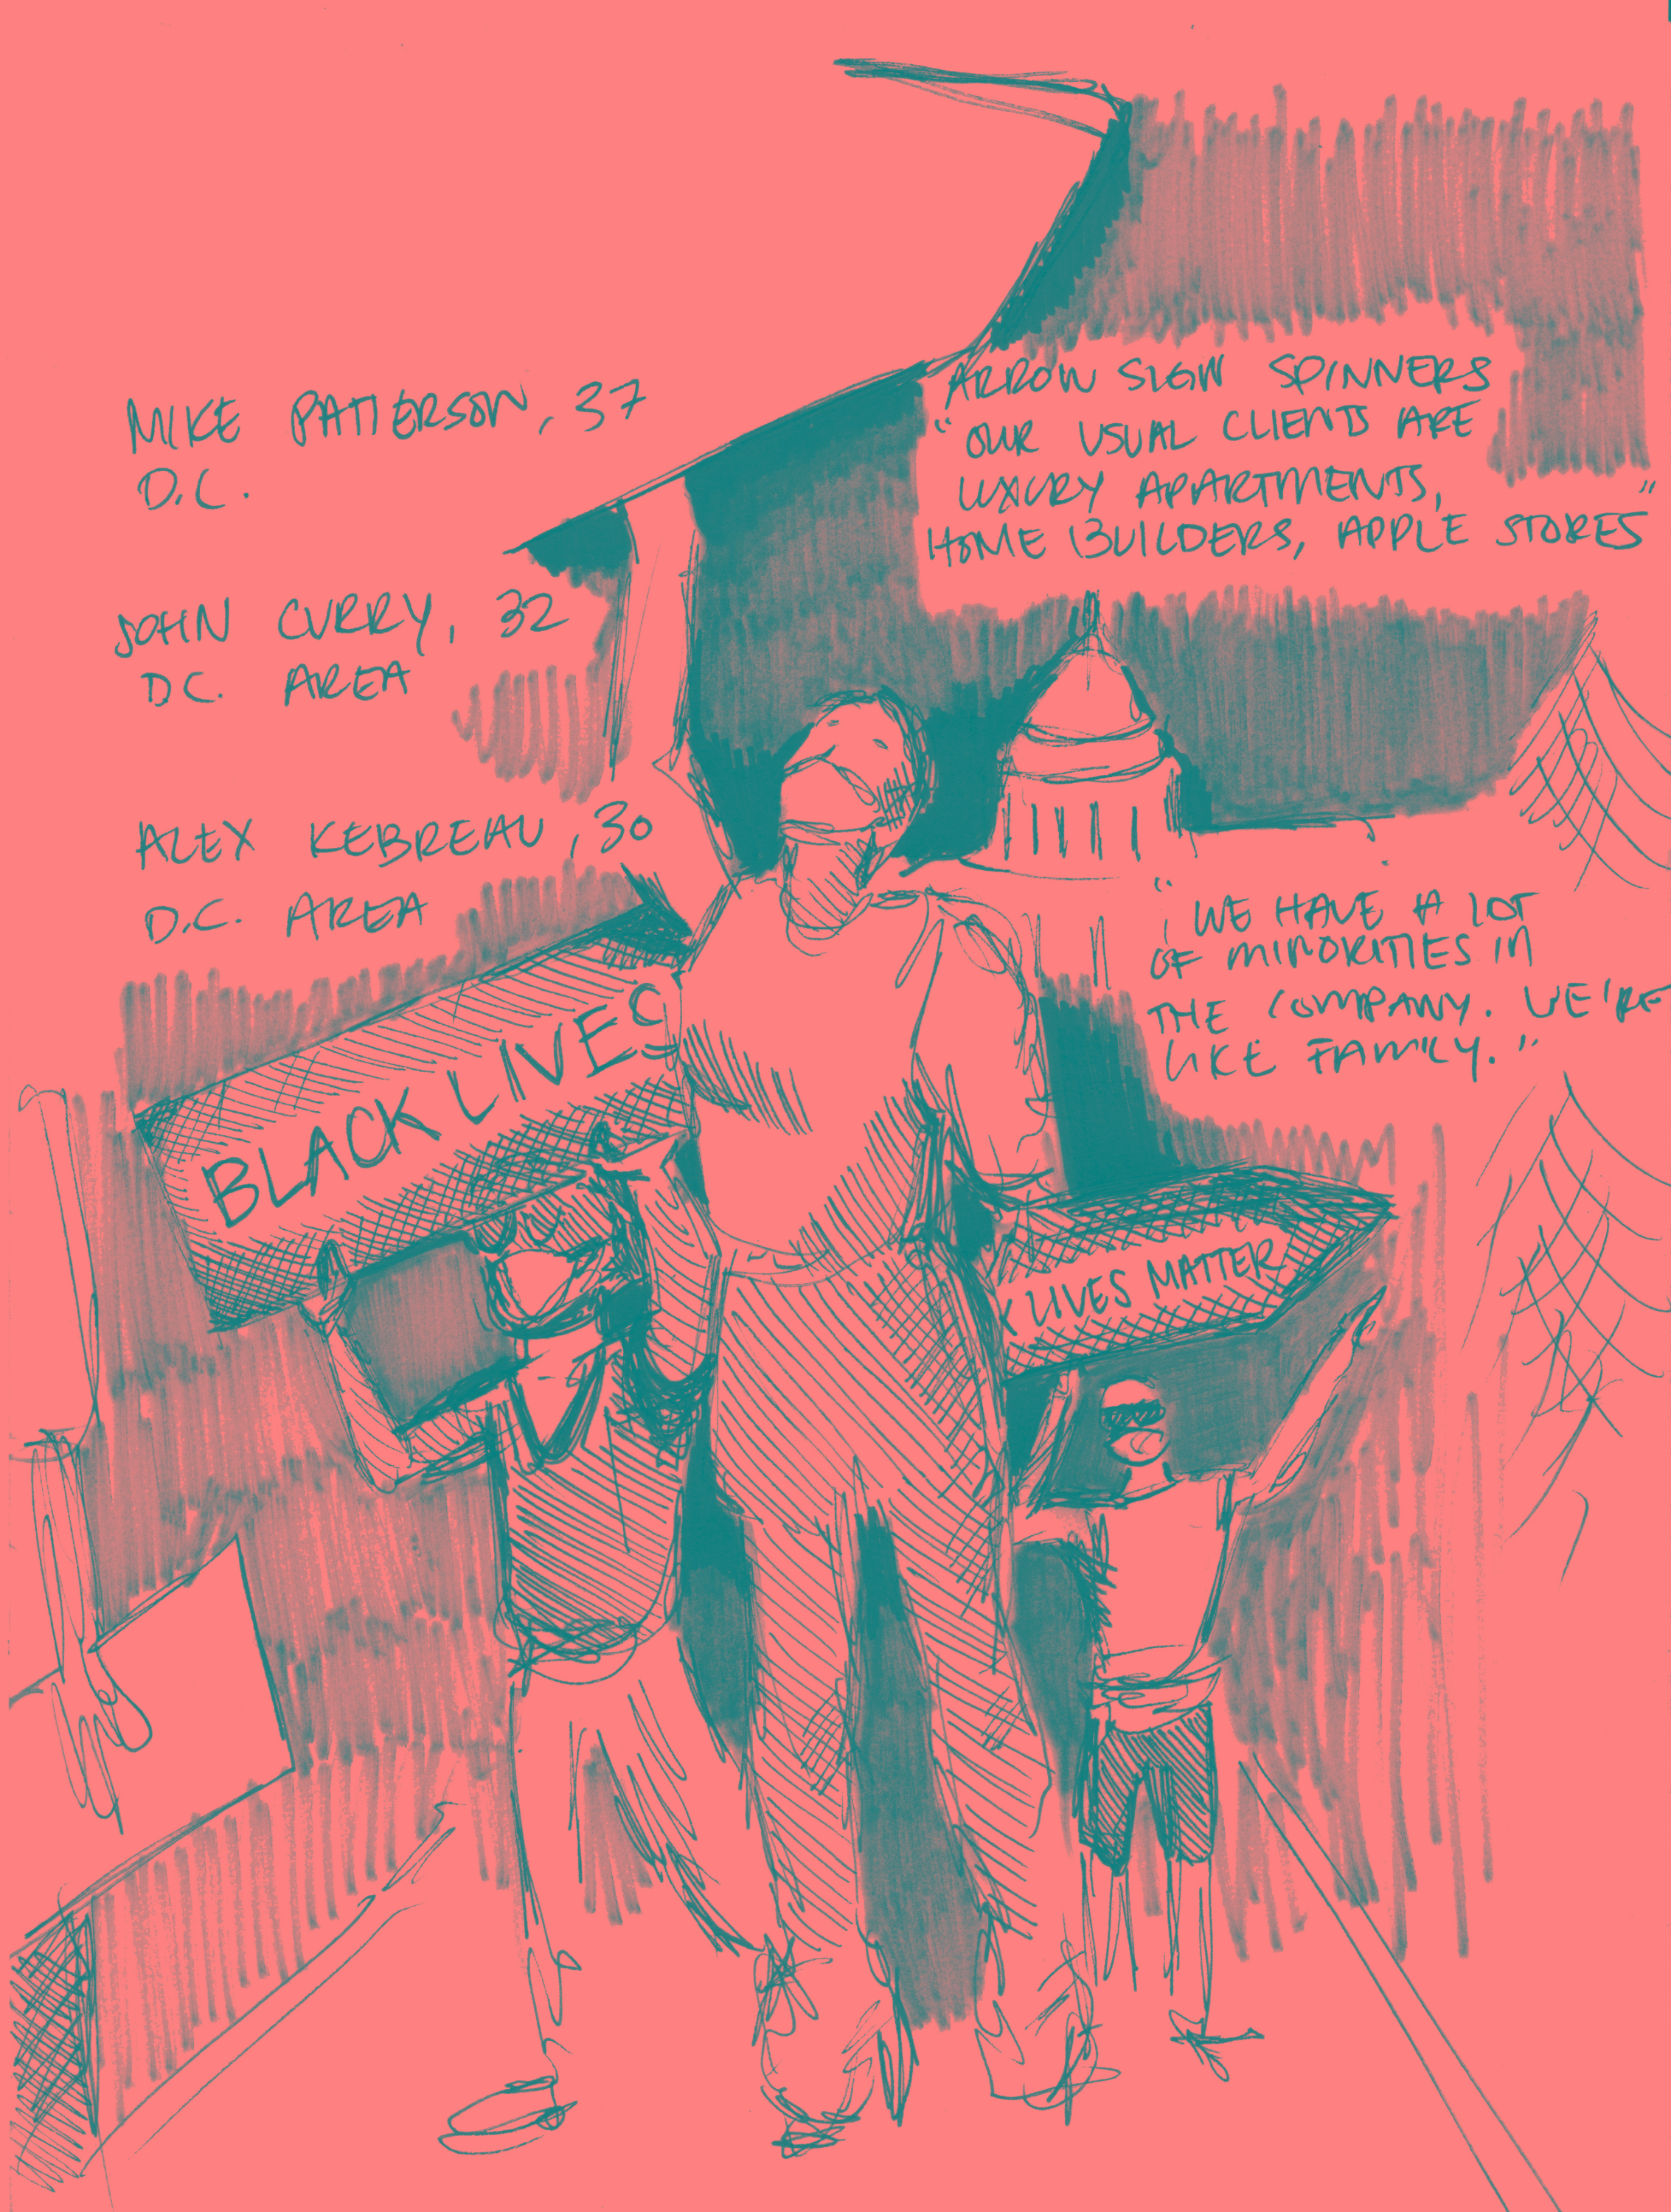 MIKE PATTERSON, 37
D.C.
JOHN CURRY, 32
DC. AREA
ALEX KEBREAU, 30
D.C. AREA
ARROW SIGN SPINNERS
"OUR USUAL CLIENTS ARE
LUXURY APARTMENTS,
HOME BUILDERS, APPLE STORES"
"WE HAVE A LOT
OF MINORITIES IN
THE COMPANY. WE'RE
LIKE FAMILY."
BLACK LIVES
K LIVES MATTER